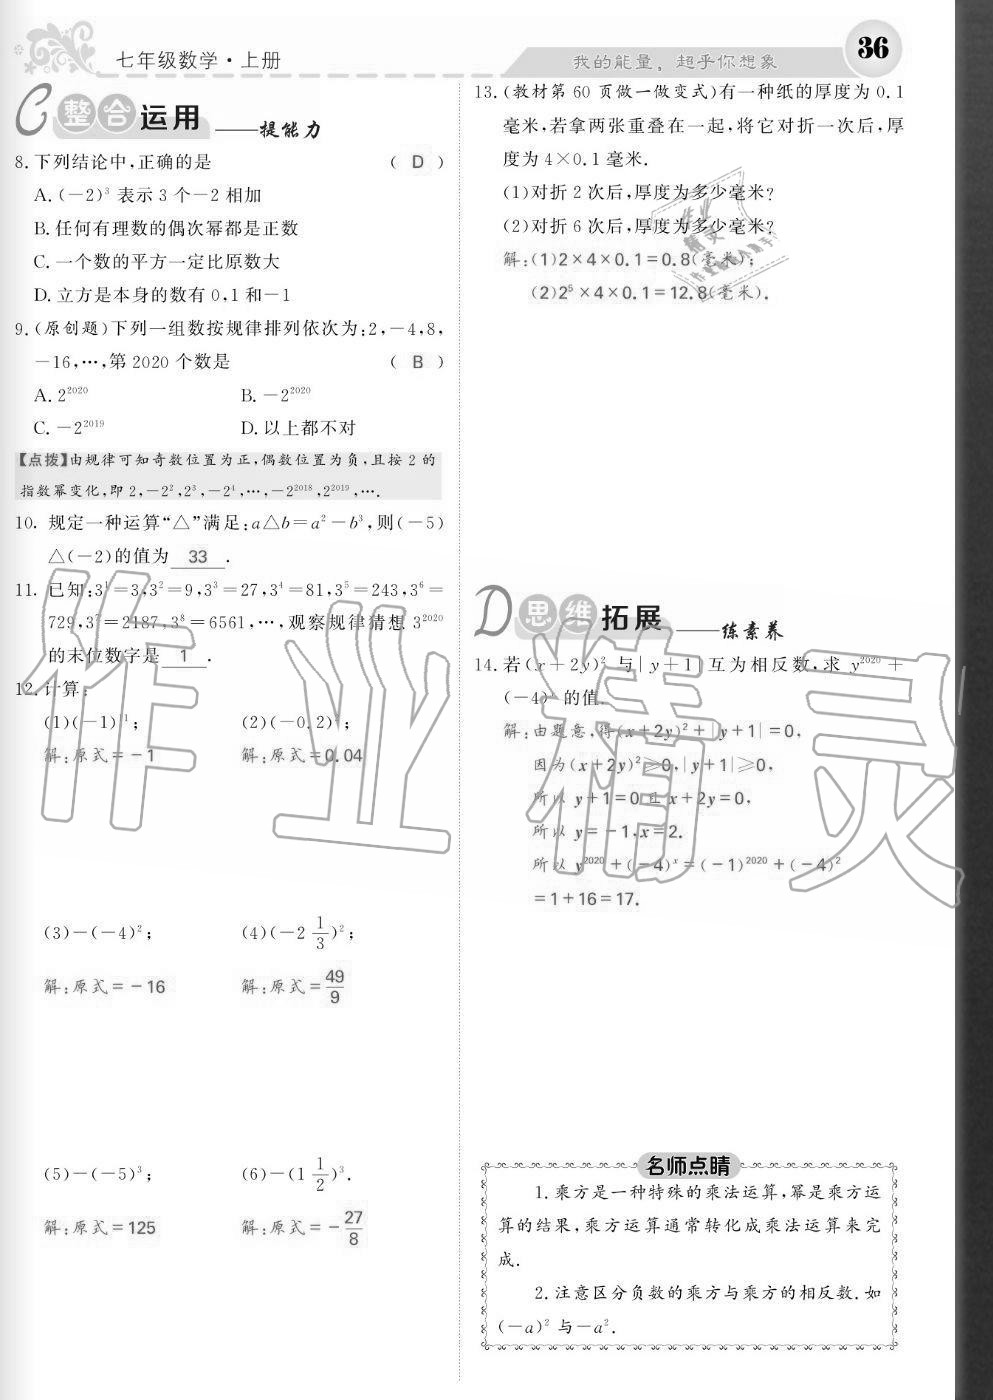 七年级数学·上册
我的能量，超乎你想象
36
C 整合运用 ——提能力
8.下列结论中,正确的是 ( D )
A.(－2)³ 表示 3 个－2 相加
B.任何有理数的偶次幂都是正数
C.一个数的平方一定比原数大
D.立方是本身的数有 0,1 和－1
9.(原创题)下列一组数按规律排列依次为:2,－4,8,
－16,…,第 2020 个数是 ( B )
A.2²⁰²⁰ B.－2²⁰²⁰
C.－2²⁰¹⁹ D.以上都不对
【点拨】由规律可知奇数位置为正,偶数位置为负,且按 2 的
指数幂变化,即 2,－2²,2³,－2⁴,…,－2²⁰¹⁸,2²⁰¹⁹,….
10. 规定一种运算“△”满足:a△b＝a²－b³,则(－5)
△(－2)的值为 33 .
11. 已知:3¹＝3,3²＝9,3³＝27,3⁴＝81,3⁵＝243,3⁶＝
729,3⁷＝2187,3⁸＝6561,…,观察规律猜想 3²⁰²⁰
的末位数字是 1 .
12.计算:
(1)(－1)¹¹; (2)(－0.2)²;
解:原式＝－1 解:原式＝0.04
(3)－(－4)²; (4)(－2 1/3)²;
解:原式＝－16 解:原式＝49/9
(5)－(－5)³; (6)－(1 1/2)³.
解:原式＝125 解:原式＝－27/8
13.(教材第 60 页做一做变式)有一种纸的厚度为 0.1
毫米,若拿两张重叠在一起,将它对折一次后,厚
度为 4×0.1 毫米.
(1)对折 2 次后,厚度为多少毫米?
(2)对折 6 次后,厚度为多少毫米?
解:(1)2×4×0.1＝0.8(毫米);
(2)2⁵×4×0.1＝12.8(毫米).
D 思维拓展 ——练素养
14.若(x＋2y)² 与|y＋1|互为相反数,求 y²⁰²⁰＋
(－4)ˣ 的值.
解:由题意,得(x＋2y)²＋|y＋1|＝0,
因为(x＋2y)²≥0,|y＋1|≥0,
所以 y＋1＝0 且 x＋2y＝0,
所以 y＝－1,x＝2.
所以 y²⁰²⁰＋(－4)ˣ＝(－1)²⁰²⁰＋(－4)²
＝1＋16＝17.
名师点睛
1.乘方是一种特殊的乘法运算,幂是乘方运
算的结果,乘方运算通常转化成乘法运算来完
成.
2.注意区分负数的乘方与乘方的相反数.如
(－a)² 与－a².
作业精灵